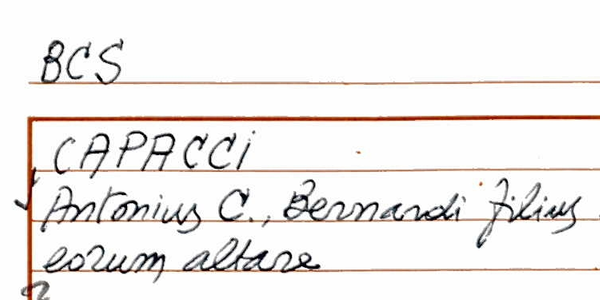 BCS
CAPACCI
Antonius C., Bernardi filius
eorum altare